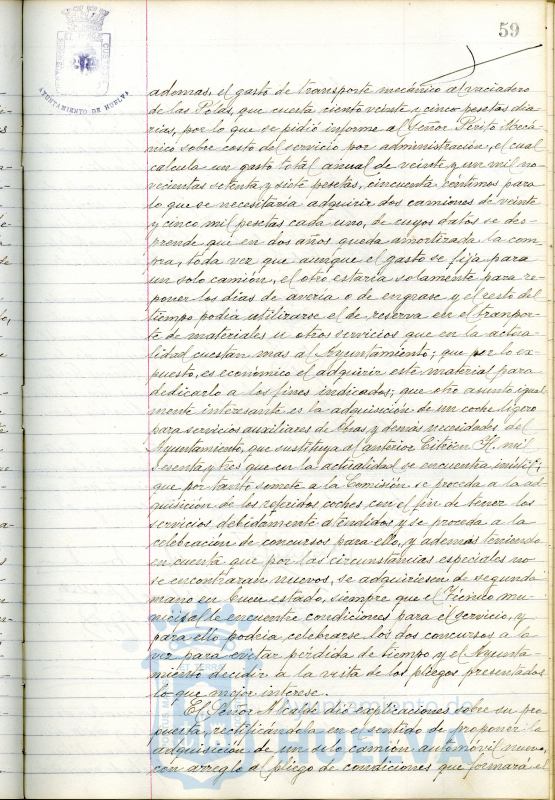 59
AYUNTAMIENTO DE HUELVA
ademas, el gasto de transporte mecánico al vaciadero
de las Pólas, que cuesta ciento veinte y cinco pesetas dia-
rias, por lo que se pidió informe al señor Perito Mecá-
nico sobre costo del servicio por administración, el cual
calcula un gasto total anual de veinte y un mil no-
vecientas setenta y siete pesetas, cincuenta céntimos para
lo que se necesitaria adquirir dos camiones de veinte
y cinco mil pesetas cada uno, de cuyos datos se des-
prende que en dos años queda amortizada la com-
pra, toda vez que aunque el gasto se fija para
un solo camión, el otro estaria solamente para re-
poner los dias de averia o de engrase y el resto del
tiempo podia utilizarse el de reserva en el tranpor-
te de materiales u otros servicios que en la actua-
lidad cuestan mas al Ayuntamiento; que por lo ex-
puesto, es económico el adquirir este material para
dedicarlo a los fines indicados; que otro asunto igual-
mente interesante es la adquisición de un coche ligero
para servicios auxiliares de Obras y demás necesidades del
Ayuntamiento, que sustituya al anterior Citröen H. mil
sesenta y tres que en la actualidad se encuentra inútil;
que por tanto somete a la Comisión se proceda a la ad-
quisición de los referidos coches con el fin de tener los
servicios debidamente atendidos y se proceda a la
celebración de concursos para ello, y además teniendo
en cuenta que por las circunstancias especiales no
se encontraran nuevos, se adquiriesen de segunda
mano en buen estado, siempre que el Técnico mu-
nicipal le encuentre condiciones para el servicio, y
para ello podria celebrarse los dos concursos a la
vez para evitar pérdida de tiempo y el Ayunta-
miento decidir a la vista de los pliegos presentados
lo que mejor interese.
El Señor Alcalde dió explicaciones sobre su pro-
puesta, rectificándola en el sentido de proponer la
adquisición de un solo camión automóvil nuevo,
con arreglo al pliego de condiciones que formará el